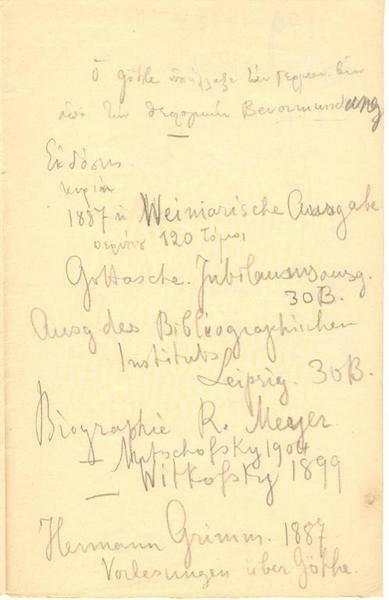 Ὁ Göthe ἀπήλλαξε τὴν Γερμαν.
ἀπὸ τὴν Bevormundung
Ἐκδόσεις.
κυρίαι
1887 ἡ Weimarische Ausgabe
περίπου 120 Τόμοι
Gottasche. Jubiläumsausg.
30B.
Ausg des Bibliographischen
Instituts
Leipzig. 30B.
Biographie R. Meyer
– 1904
Witkofsky 1899
–
Hermann Grimm. 1887
Vorlesungen über Göthe.